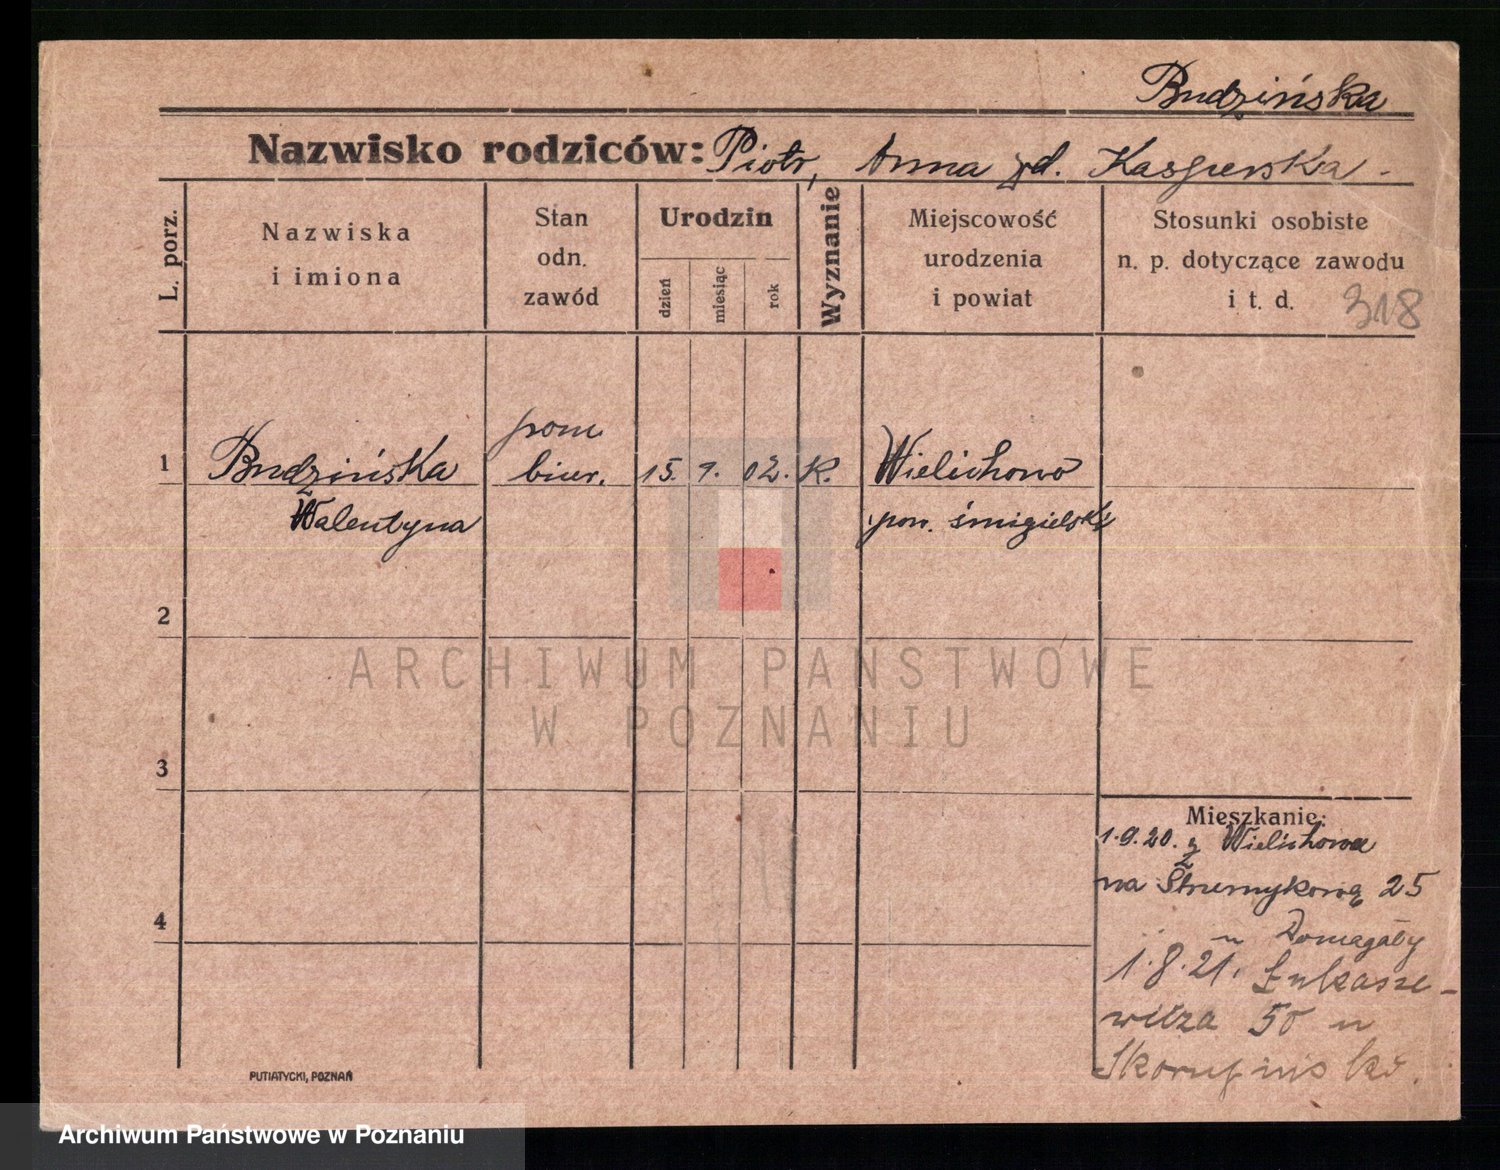 Budzińska
Nazwisko rodziców: Piotr, Anna zd. Kasperska -
L. porz.
Nazwiska
i imiona
Stan
odn.
zawód
Urodzin
dzień
miesiąc
rok
Wyznanie
Miejscowość
urodzenia
i powiat
Stosunki osobiste
n. p. dotyczące zawodu
i t. d.
318
1
Budzińska
Walentyna
pom.
biur.
15. 1. 02. K.
Wielichowo
pow. śmigielski
2
ARCHIWUM PAŃSTWOWE
W POZNANIU
3
Mieszkanie:
1.9.20. z Wielichowa
na Strumykową 25
u Domagały
4
1.8.21. Łukasze-
wicza 50 u
Skorupinski.
PUTIATYCKI, POZNAŃ
Archiwum Państwowe w Poznaniu